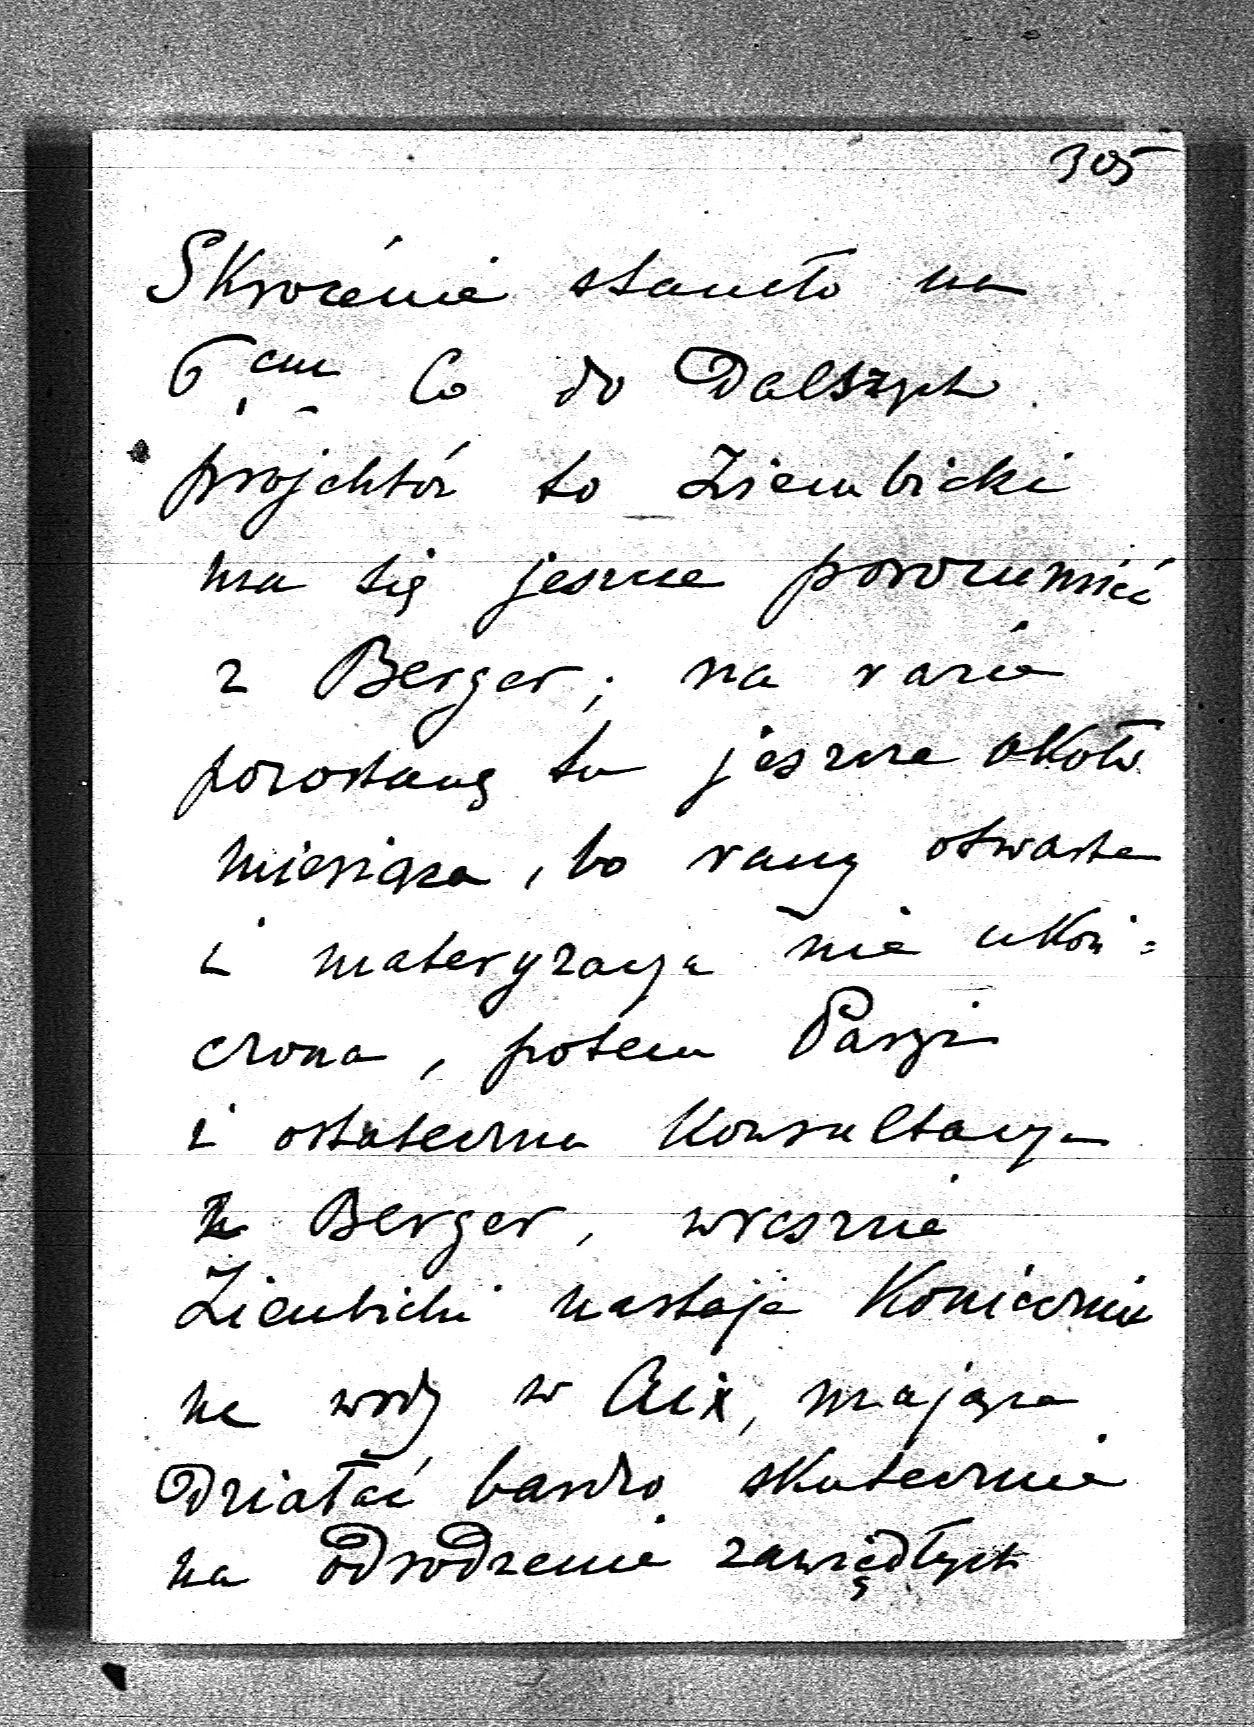 305
Skrócenie stanęło na
6 cm Co do Dalszych
projektów to Ziembicki
ma się jeszcze porozumieć
z Berger; na razie
pozostanę tu jeszcze około
miesiąca, bo rany otwarte
i materyzacja nie ukoń=
czona, potem Paryż
i ostateczna Konsultacya
z Berger, wreszcie
Ziembicki nastaje Koniecznie
na wody w Aix, mające
Działać bardzo skutecznie
na odrodzenie zawiędłych